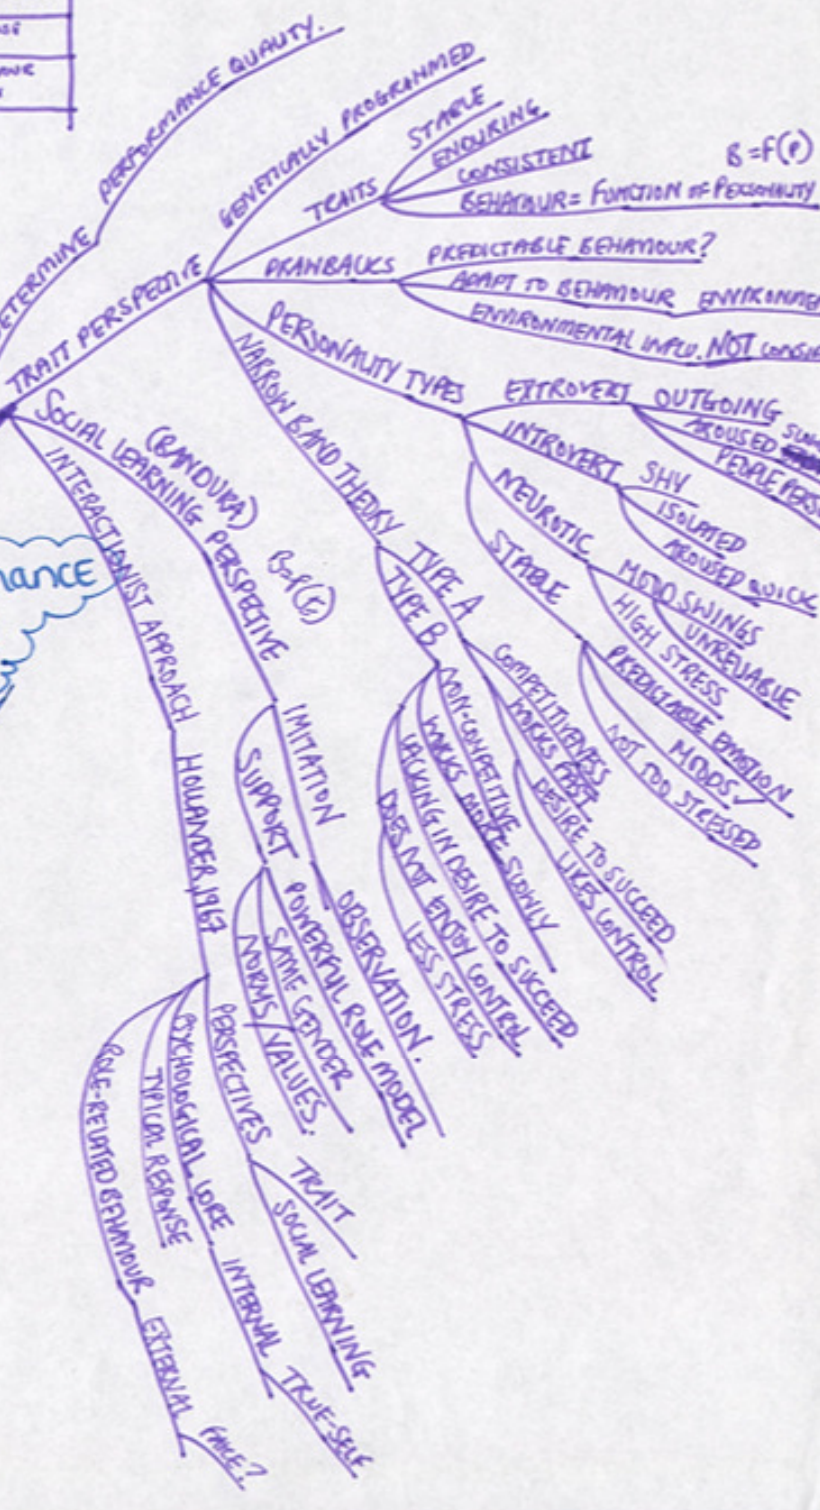 PERFORMANCE QUALITY.
TRAIT PERSPECTIVE
GENETICALLY PROGRAMMED
TRAITS
STABLE
ENDURING
CONSISTENT
BEHAVIOUR = FUNCTION OF PERSONALITY
B = F(P)
DRAWBACKS
PREDICTABLE BEHAVIOUR?
ADAPT TO BEHAVIOUR
ENVIRONMENTAL
NOT
PERSONALITY TYPES
EXTROVERT
OUTGOING
AROUSED
INTROVERT
SHY
ISOLATED
AROUSED QUICK
NEUROTIC
MOOD SWINGS
UNRELIABLE
HIGH STRESS
STABLE
PREDICTABLE EMOTION
MOODS ✓
NOT TOO STRESSED
NARROW BAND THEORY
TYPE A
COMPETITIVENESS
WORKS FAST
DESIRE TO SUCCEED
LIKES CONTROL
TYPE B
NON-COMPETITIVE
WORKS MORE SLOWLY
LACKING IN DESIRE TO SUCCEED
DOES NOT ENJOY CONTROL
LESS STRESS
SOCIAL LEARNING PERSPECTIVE
(BANDURA)
B=F(E)
IMITATION
OBSERVATION.
SUPPORT
POWERFUL ROLE MODEL
SAME GENDER
NORMS/VALUES.
INTERACTIONIST APPROACH
HOLLANDER, 1967
PERSPECTIVES
TRAIT
SOCIAL LEARNING
PSYCHOLOGICAL CORE
INTERNAL
TRUE-SELF
TYPICAL RESPONSE
ROLE-RELATED BEHAVIOUR
EXTERNAL
FAKE?